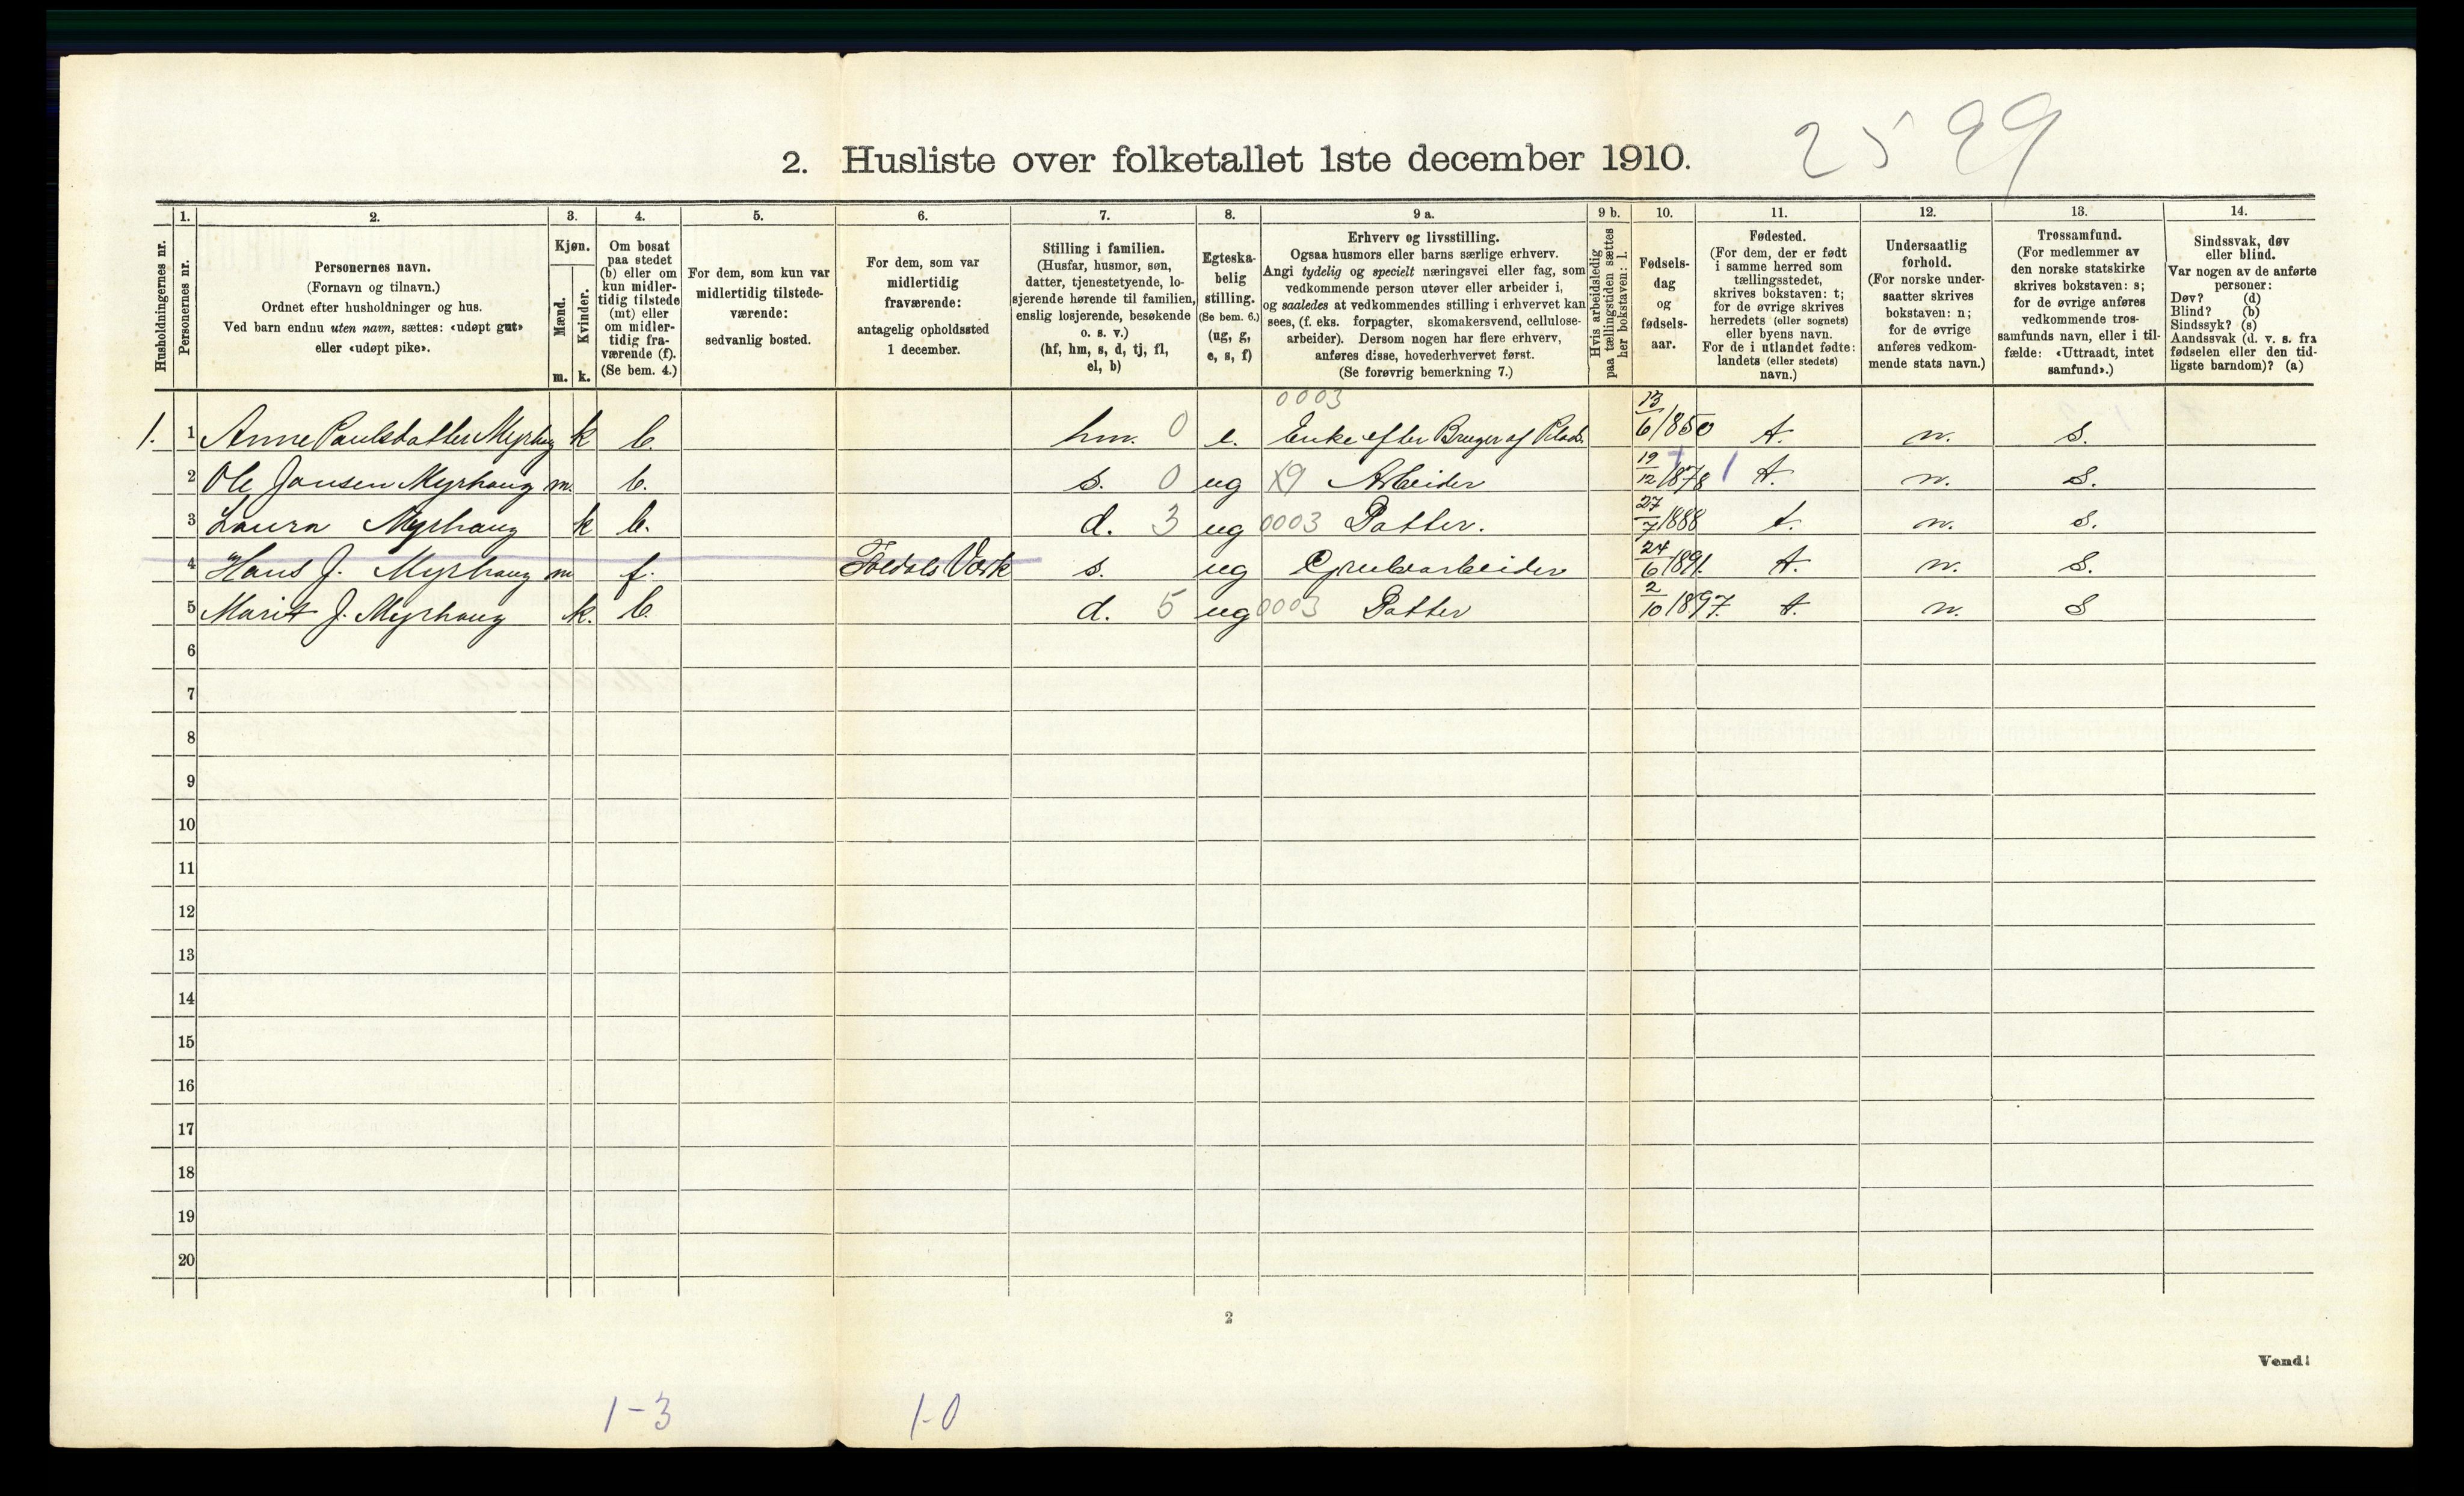 2599
2. Husliste over folketallet 1ste december 1910.
Husholdningernes nr.
1.
Personernes nr.
2.
Personernes navn.
(Fornavn og tilnavn.)
Ordnet efter husholdninger og hus.
Ved barn endnu uten navn, sættes: «udøpt gut»
eller «udøpt pike».
3.
Kjøn.
Mænd.
Kvinder.
m. k.
4.
Om bosat
paa stedet
(b) eller om
kun midler-
tidig tilstede
(mt) eller
om midler-
tidig fra-
værende (f).
(Se bem. 4.)
5.
For dem, som kun var
midlertidig tilstede-
værende:
sedvanlig bosted.
6.
For dem, som var
midlertidig
fraværende:
antagelig opholdssted
1 december.
7.
Stilling i familien.
(Husfar, husmor, søn,
datter, tjenestetyende, lo-
sjerende hørende til familien,
enslig losjerende, besøkende
o. s. v.)
(hf, hm, s, d, tj, fl,
el, b)
8.
Egteska-
belig
stilling.
(Se bem. 6.)
(ug, g,
e, s, f)
9 a.
Erhverv og livsstilling.
Ogsaa husmors eller barns særlige erhverv.
Angi tydelig og specielt næringsvei eller fag, som
vedkommende person utøver eller arbeider i,
og saaledes at vedkommendes stilling i erhvervet kan
sees, (f. eks. forpagter, skomakersvend, cellulose-
arbeider). Dersom nogen har flere erhverv,
anføres disse, hovederhvervet først.
(Se forøvrig bemerkning 7.)
9 b.
Hvis arbeidsledig
paa tællingstiden sættes
her bokstaven: l.
10.
Fødsels-
dag
og
fødsels-
aar.
11.
Fødested.
(For dem, der er født
i samme herred som
tællingsstedet,
skrives bokstaven: t;
for de øvrige skrives
herredets (eller sognets)
eller byens navn.
For de i utlandet fødte:
landets (eller stedets)
navn.)
12.
Undersaatlig
forhold.
(For norske under-
saatter skrives
bokstaven: n;
for de øvrige
anføres vedkom-
mende stats navn.)
13.
Trossamfund.
(For medlemmer av
den norske statskirke
skrives bokstaven: s;
for de øvrige anføres
vedkommende tros-
samfunds navn, eller i til-
fælde: «Uttraadt, intet
samfund».)
14.
Sindssvak, døv
eller blind.
Var nogen av de anførte
personer:
Døv? (d)
Blind? (b)
Sindssyk? (s)
Aandssvak (d. v. s. fra
fødselen eller den tid-
ligste barndom)? (a)
0003
1. 1 Anne Paulsdatter Myrhaug k b. hm. 0 e. Enke efter Bruger af Plads. 13/6/1850 t. n. s.
2 Ole Jonsen Myrhaug m. b. s. 0 ug x9 Arbeider 19/12/1878 1 t. n. s.
3 Laura Myrhaug k b. d. 3 ug 0003 Datter. 27/7 1888 t. n. s.
4 Hans J. Myrhaug m f. Foldals Værk s. ug Grubearbeider 24/6 1891. t. n. s.
5 Marit J. Myrhaug k. b. d. 5 ug 0003 Datter 2/10 1897. t. n. s
6
7
8
9
10
11
12
13
14
15
16
17
18
19
20
2
Vend!
1-3 1-0